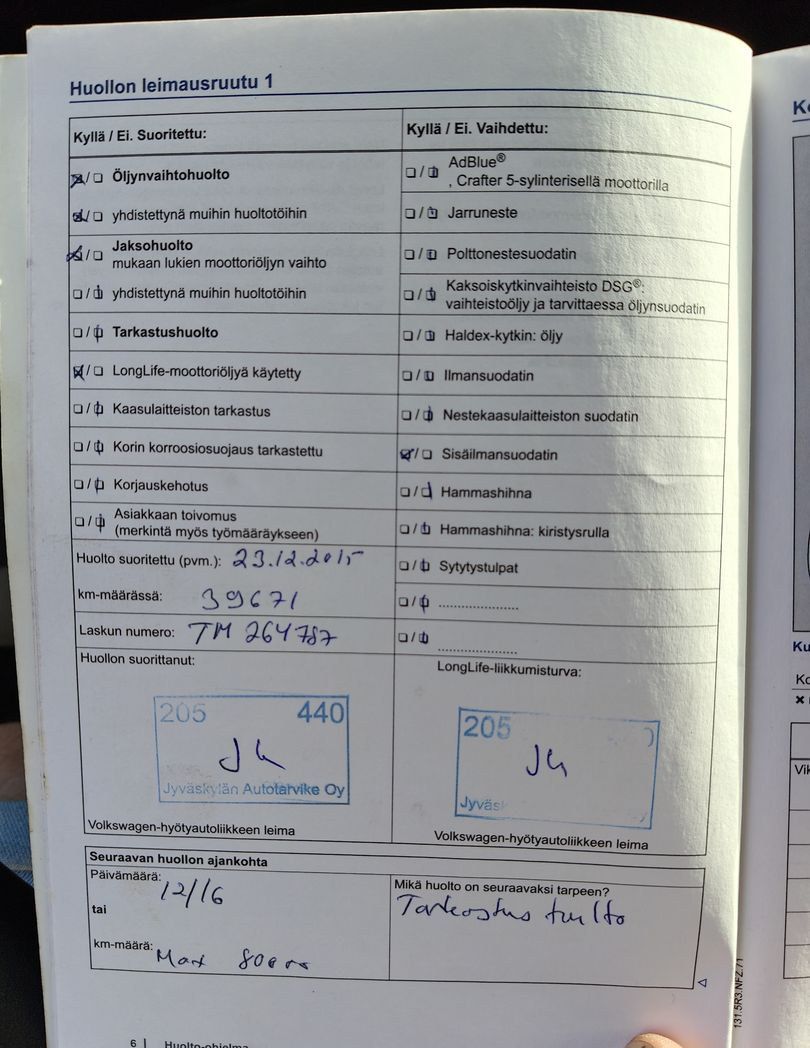 Huollon leimausruutu 1
Kyllä / Ei. Suoritettu:
Öljynvaihtohuolto
yhdistettynä muihin huoltotöihin
Jaksohuolto
mukaan lukien moottoriöljyn vaihto
yhdistettynä muihin huoltotöihin
Tarkastushuolto
LongLife-moottoriöljyä käytetty
Kaasulaitteiston tarkastus
Korin korroosiosuojaus tarkastettu
Korjauskehotus
Asiakkaan toivomus
(merkintä myös työmääräykseen)
Huolto suoritettu (pvm.): 23.12.2015
km-määrässä: 39671
Laskun numero: TM 264787
Huollon suorittanut:
205 440
Jyväskylän Autotarvike Oy
Volkswagen-hyötyautoliikkeen leima
Kyllä / Ei. Vaihdettu:
AdBlue®
, Crafter 5-sylinterisellä moottorilla
Jarruneste
Polttonestesuodatin
Kaksoiskytkinvaihteisto DSG®:
vaihteistoöljy ja tarvittaessa öljynsuodatin
Haldex-kytkin: öljy
Ilmansuodatin
Nestekaasulaitteiston suodatin
Sisäilmansuodatin
Hammashihna
Hammashihna: kiristysrulla
Sytytystulpat
LongLife-liikkumisturva:
205
Jyväs
Volkswagen-hyötyautoliikkeen leima
Seuraavan huollon ajankohta
Päivämäärä: 12/16
tai
km-määrä: Max
Mikä huolto on seuraavaksi tarpeen?
131.5R3.NFZ.71
6 | Huolto-ohjelma